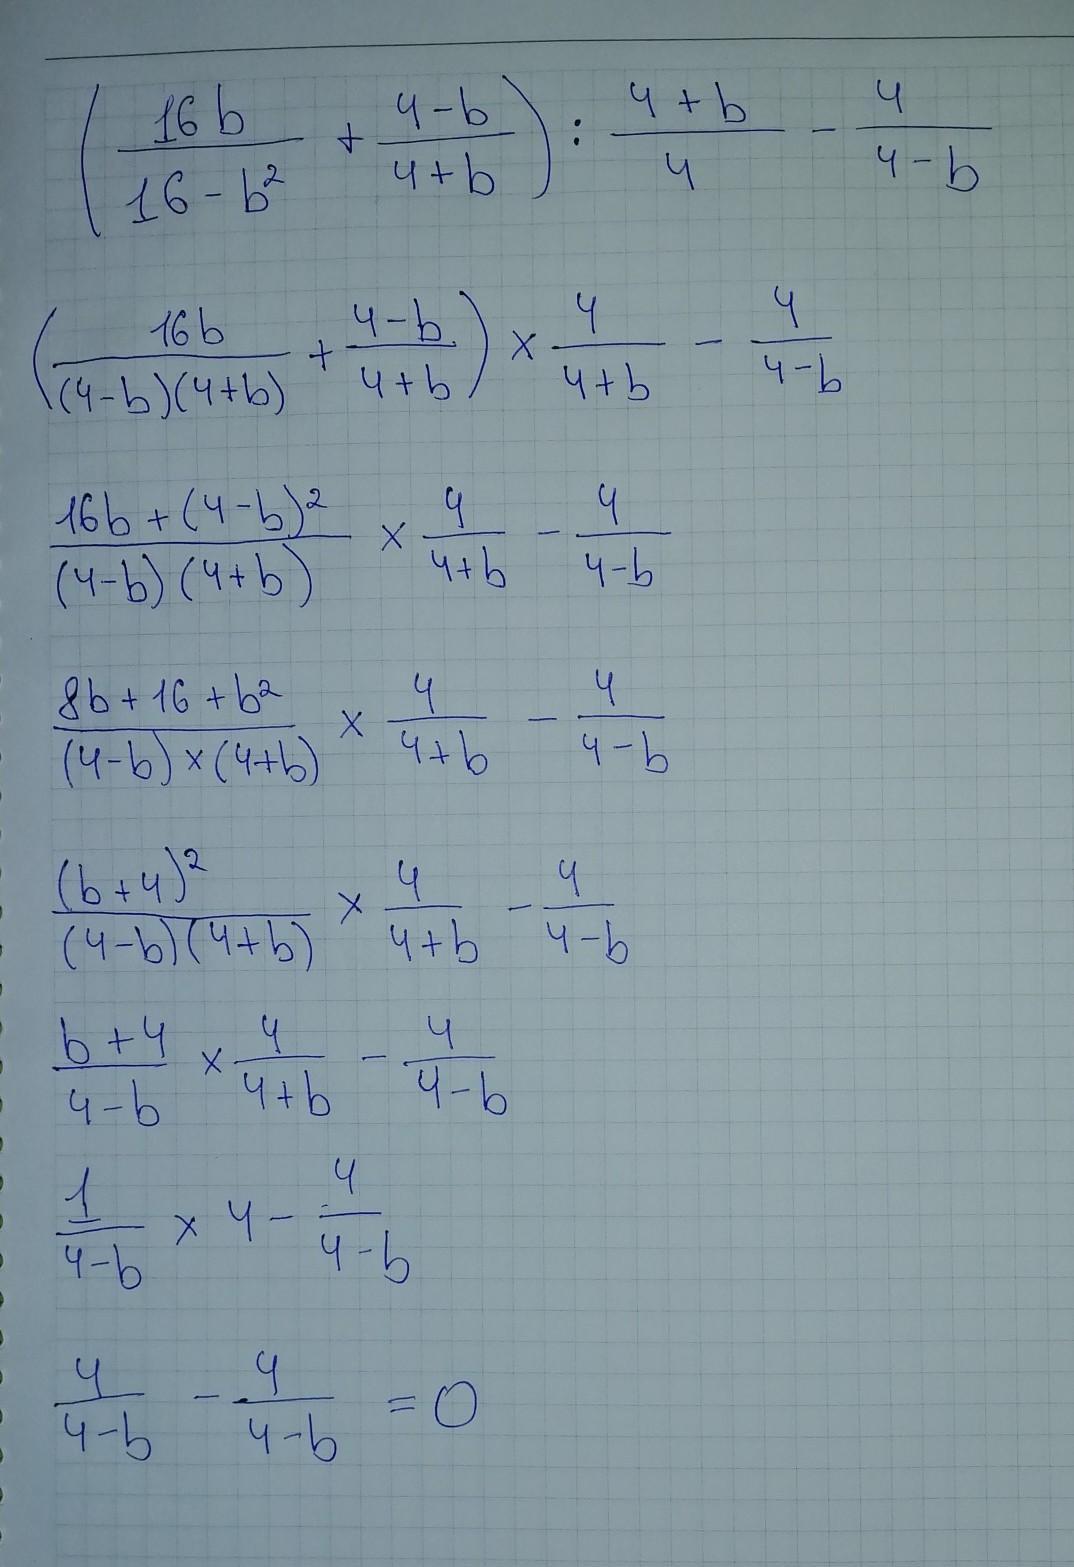 (16b/(16-b²) + (4-b)/(4+b)) : (4+b)/4 - 4/(4-b)
(16b/((4-b)(4+b)) + (4-b)/(4+b)) × 4/(4+b) - 4/(4-b)
(16b+(4-b)²)/((4-b)(4+b)) × 4/(4+b) - 4/(4-b)
(8b+16+b²)/((4-b)×(4+b)) × 4/(4+b) - 4/(4-b)
(b+4)²/((4-b)(4+b)) × 4/(4+b) - 4/(4-b)
(b+4)/(4-b) × 4/(4+b) - 4/(4-b)
1/(4-b) × 4 - 4/(4-b)
4/(4-b) - 4/(4-b) = 0